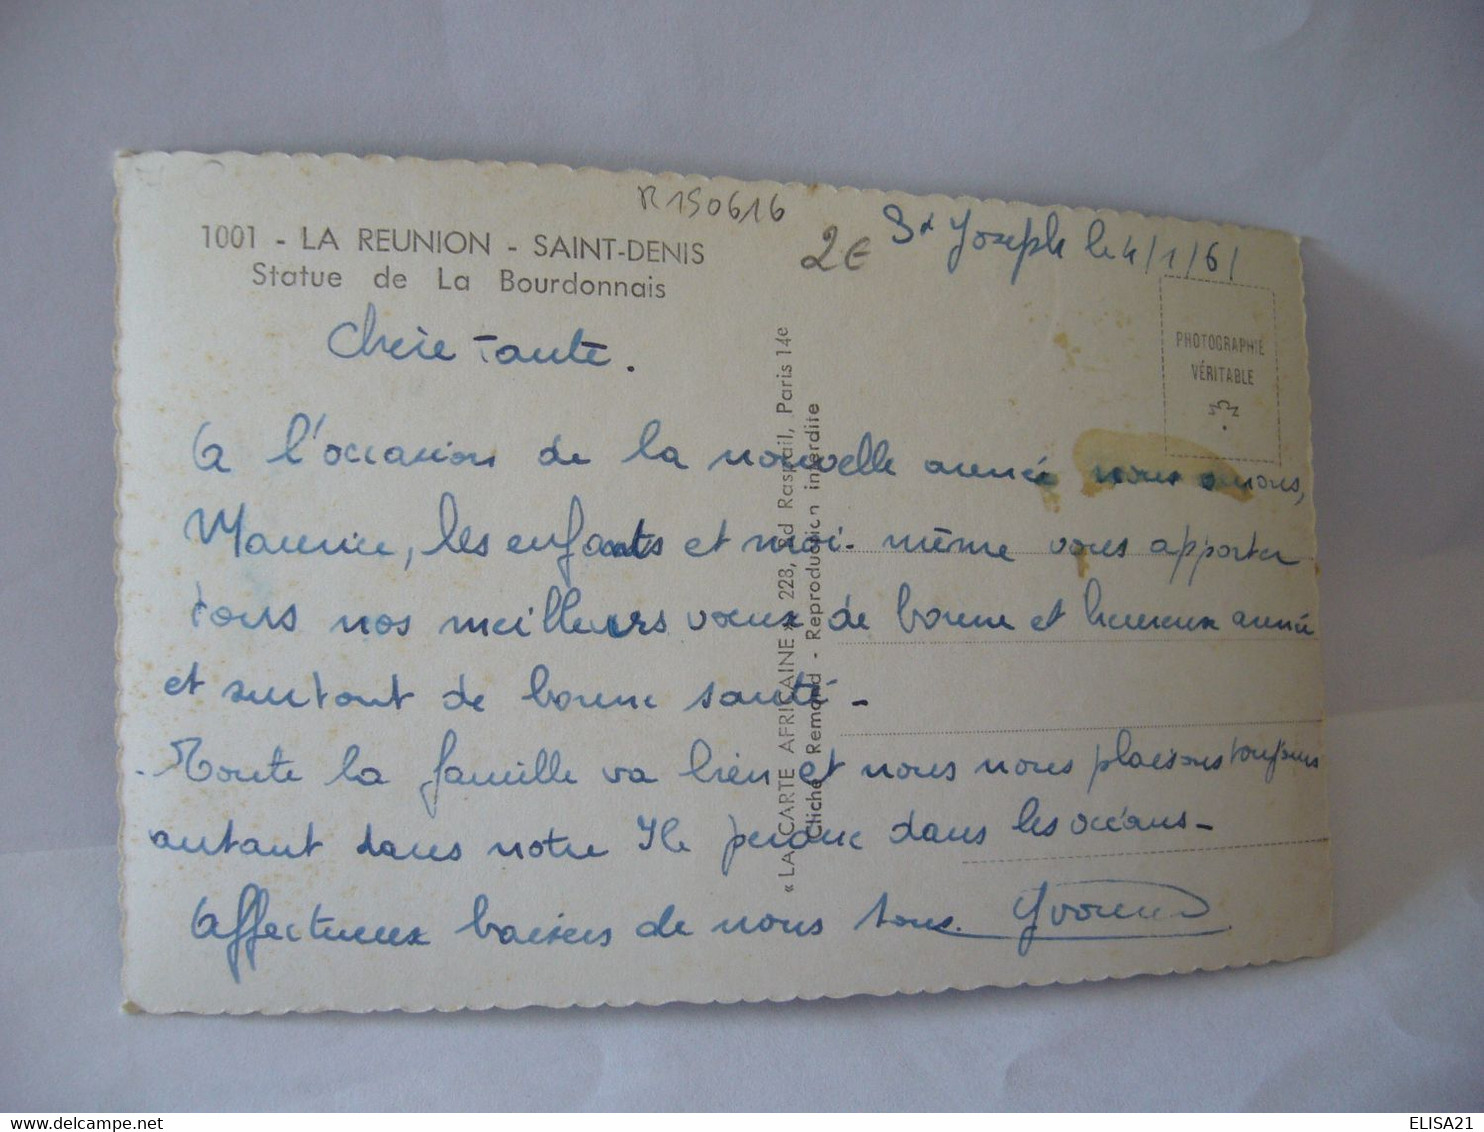 R150616
1001 - LA REUNION - SAINT-DENIS
Statue de La Bourdonnais
2€
St Joseph le 4/1/61
PHOTOGRAPHIE
VÉRITABLE
Chère Tante.
A l'occasion de la nouvelle année nous avons,
Maurice, les enfants et moi-même vous apporter
tous nos meilleurs voeux de bonne et heureuse année
et surtout de bonne santé -
Toute la famille va bien et nous nous plaisons toujours
autant dans notre Ile perdue dans les océans -
Affectueux baisers de nous tous. Yvonne
« LA CARTE AFRICAINE » 228, Bd Raspail, Paris 14e
Cliché Remond - Reproduction interdite
ELISA21